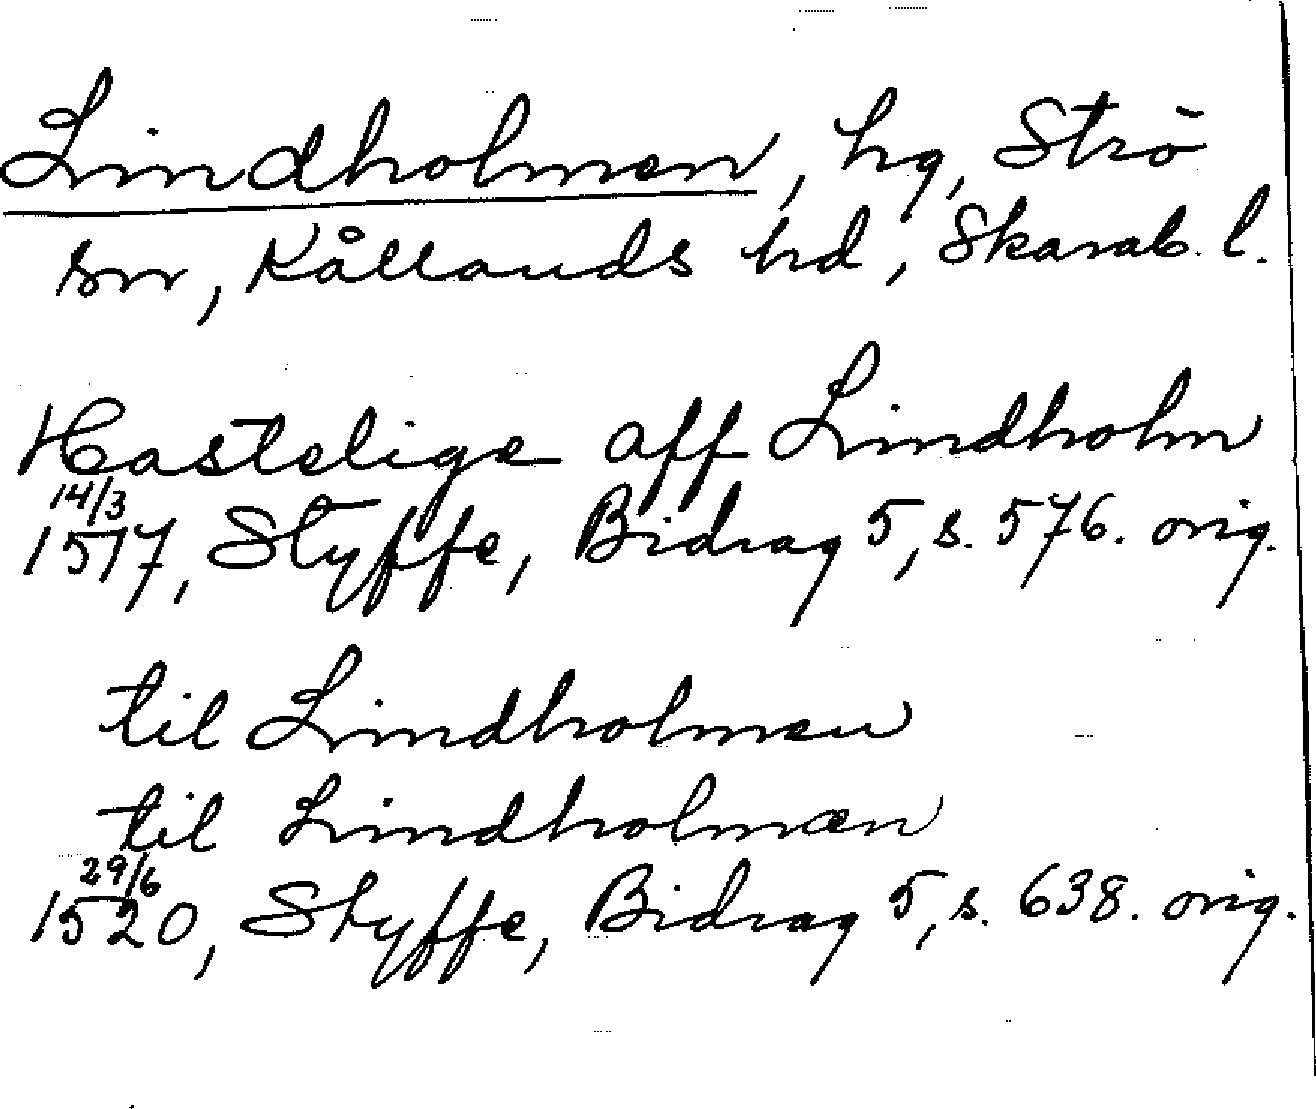 Lindholmen, hg, Strö
sn, Kållands hd, Skarab. l.
Hastelige aff Lindholm
14/3
1517, Styffe, Bidrag 5, s. 576. orig.
til Lindholmen
til Lindholmæn
29/6
1520, Styffe, Bidrag 5, s. 638. orig.